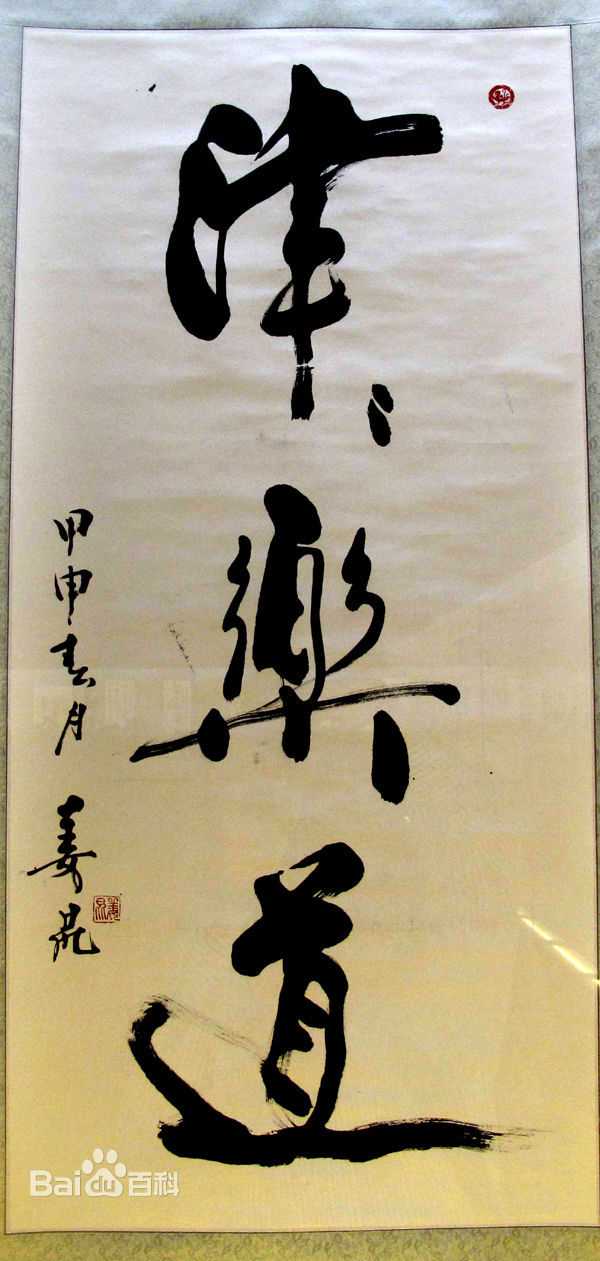 津〻樂道
甲申春月 姜昆
Bai du 百科